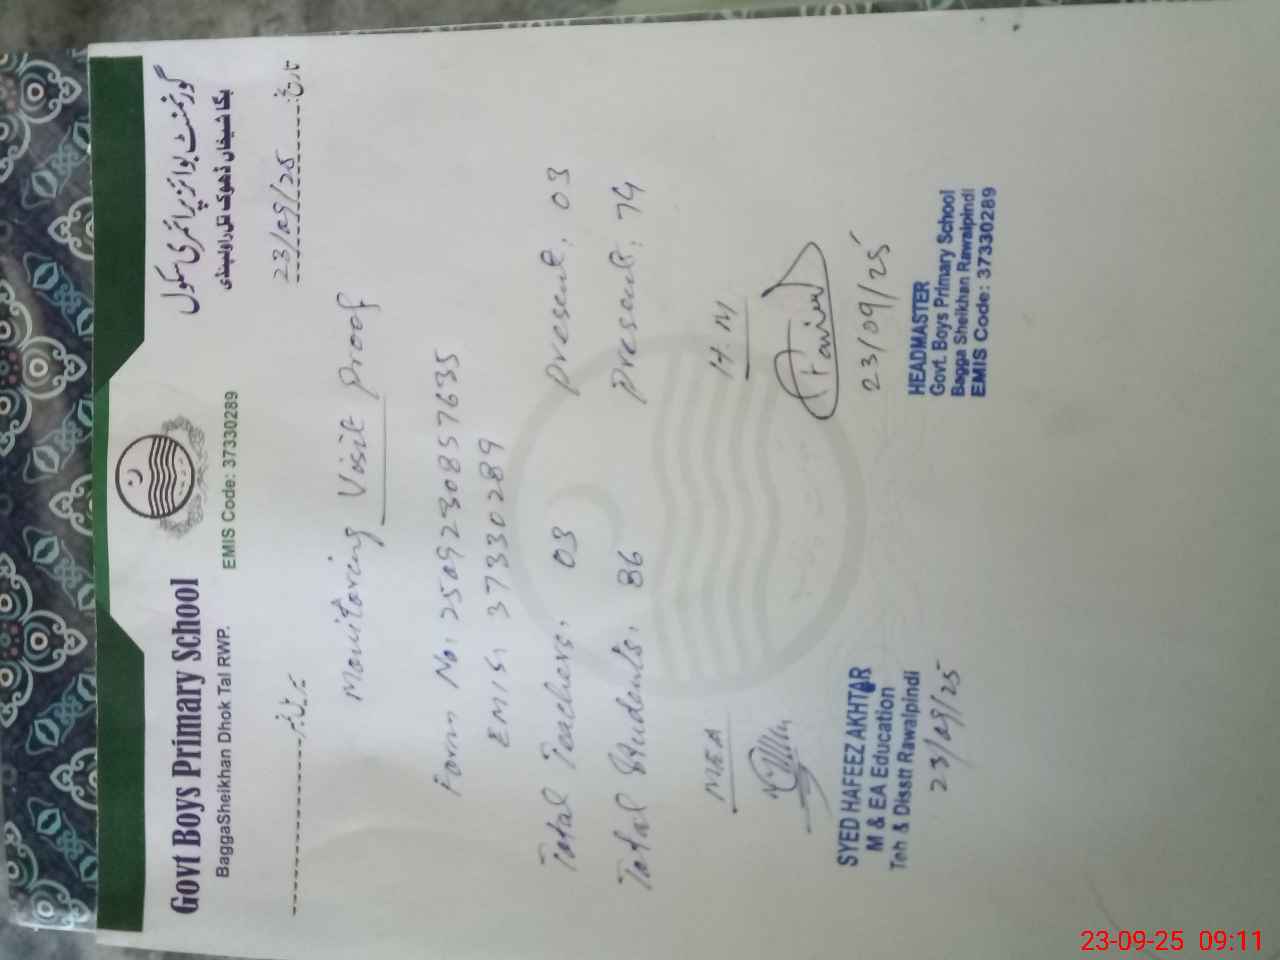 Govt Boys Primary School
BaggaSheikhan Dhok Tal RWP.
EMIS Code: 37330289
گورنمنٹ بوائز پرائمری سکول
بگا شیخاں ڈھوک تل راولپنڈی
تاریخ: 23/09/25
Monitoring Visit Proof
Form No. 250923085 7635
EMIS. 37330289
Total Teachers. 03 Present. 03
Total Students. 86 Present. 74
MEA H.M
23/09/25
SYED HAFEEZ AKHTAR
M & EA Education
Teh & Disstt Rawalpindi
23/09/25
HEADMASTER
Govt. Boys Primary School
Bagga Sheikhan Rawalpindi
EMIS Code: 37330289
23-09-25 09:11